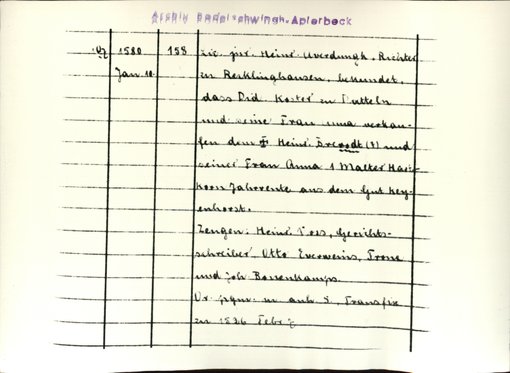 Archiv Bodelschwingh-Aplerbeck
1580 158 Lic. jur. Heinr. Uverdungk, Richter
Jan. 10. zu Recklinghausen, bekundet,
dass Did. Koster zu
und seine Frau verkau-
fen dem Heinr. (?) und
seiner Frau Anna 1 Malter Hart-
korn Jahrrente aus dem Gut Key-
enhorst.
Zeugen: Heinr. Voss, Gerichts-
schreiber, Otto Everweins, Frone
und Joh. Bonenkamps.
Or. Pgm. m. anh. S., Transfix
zu 1526 Febr.